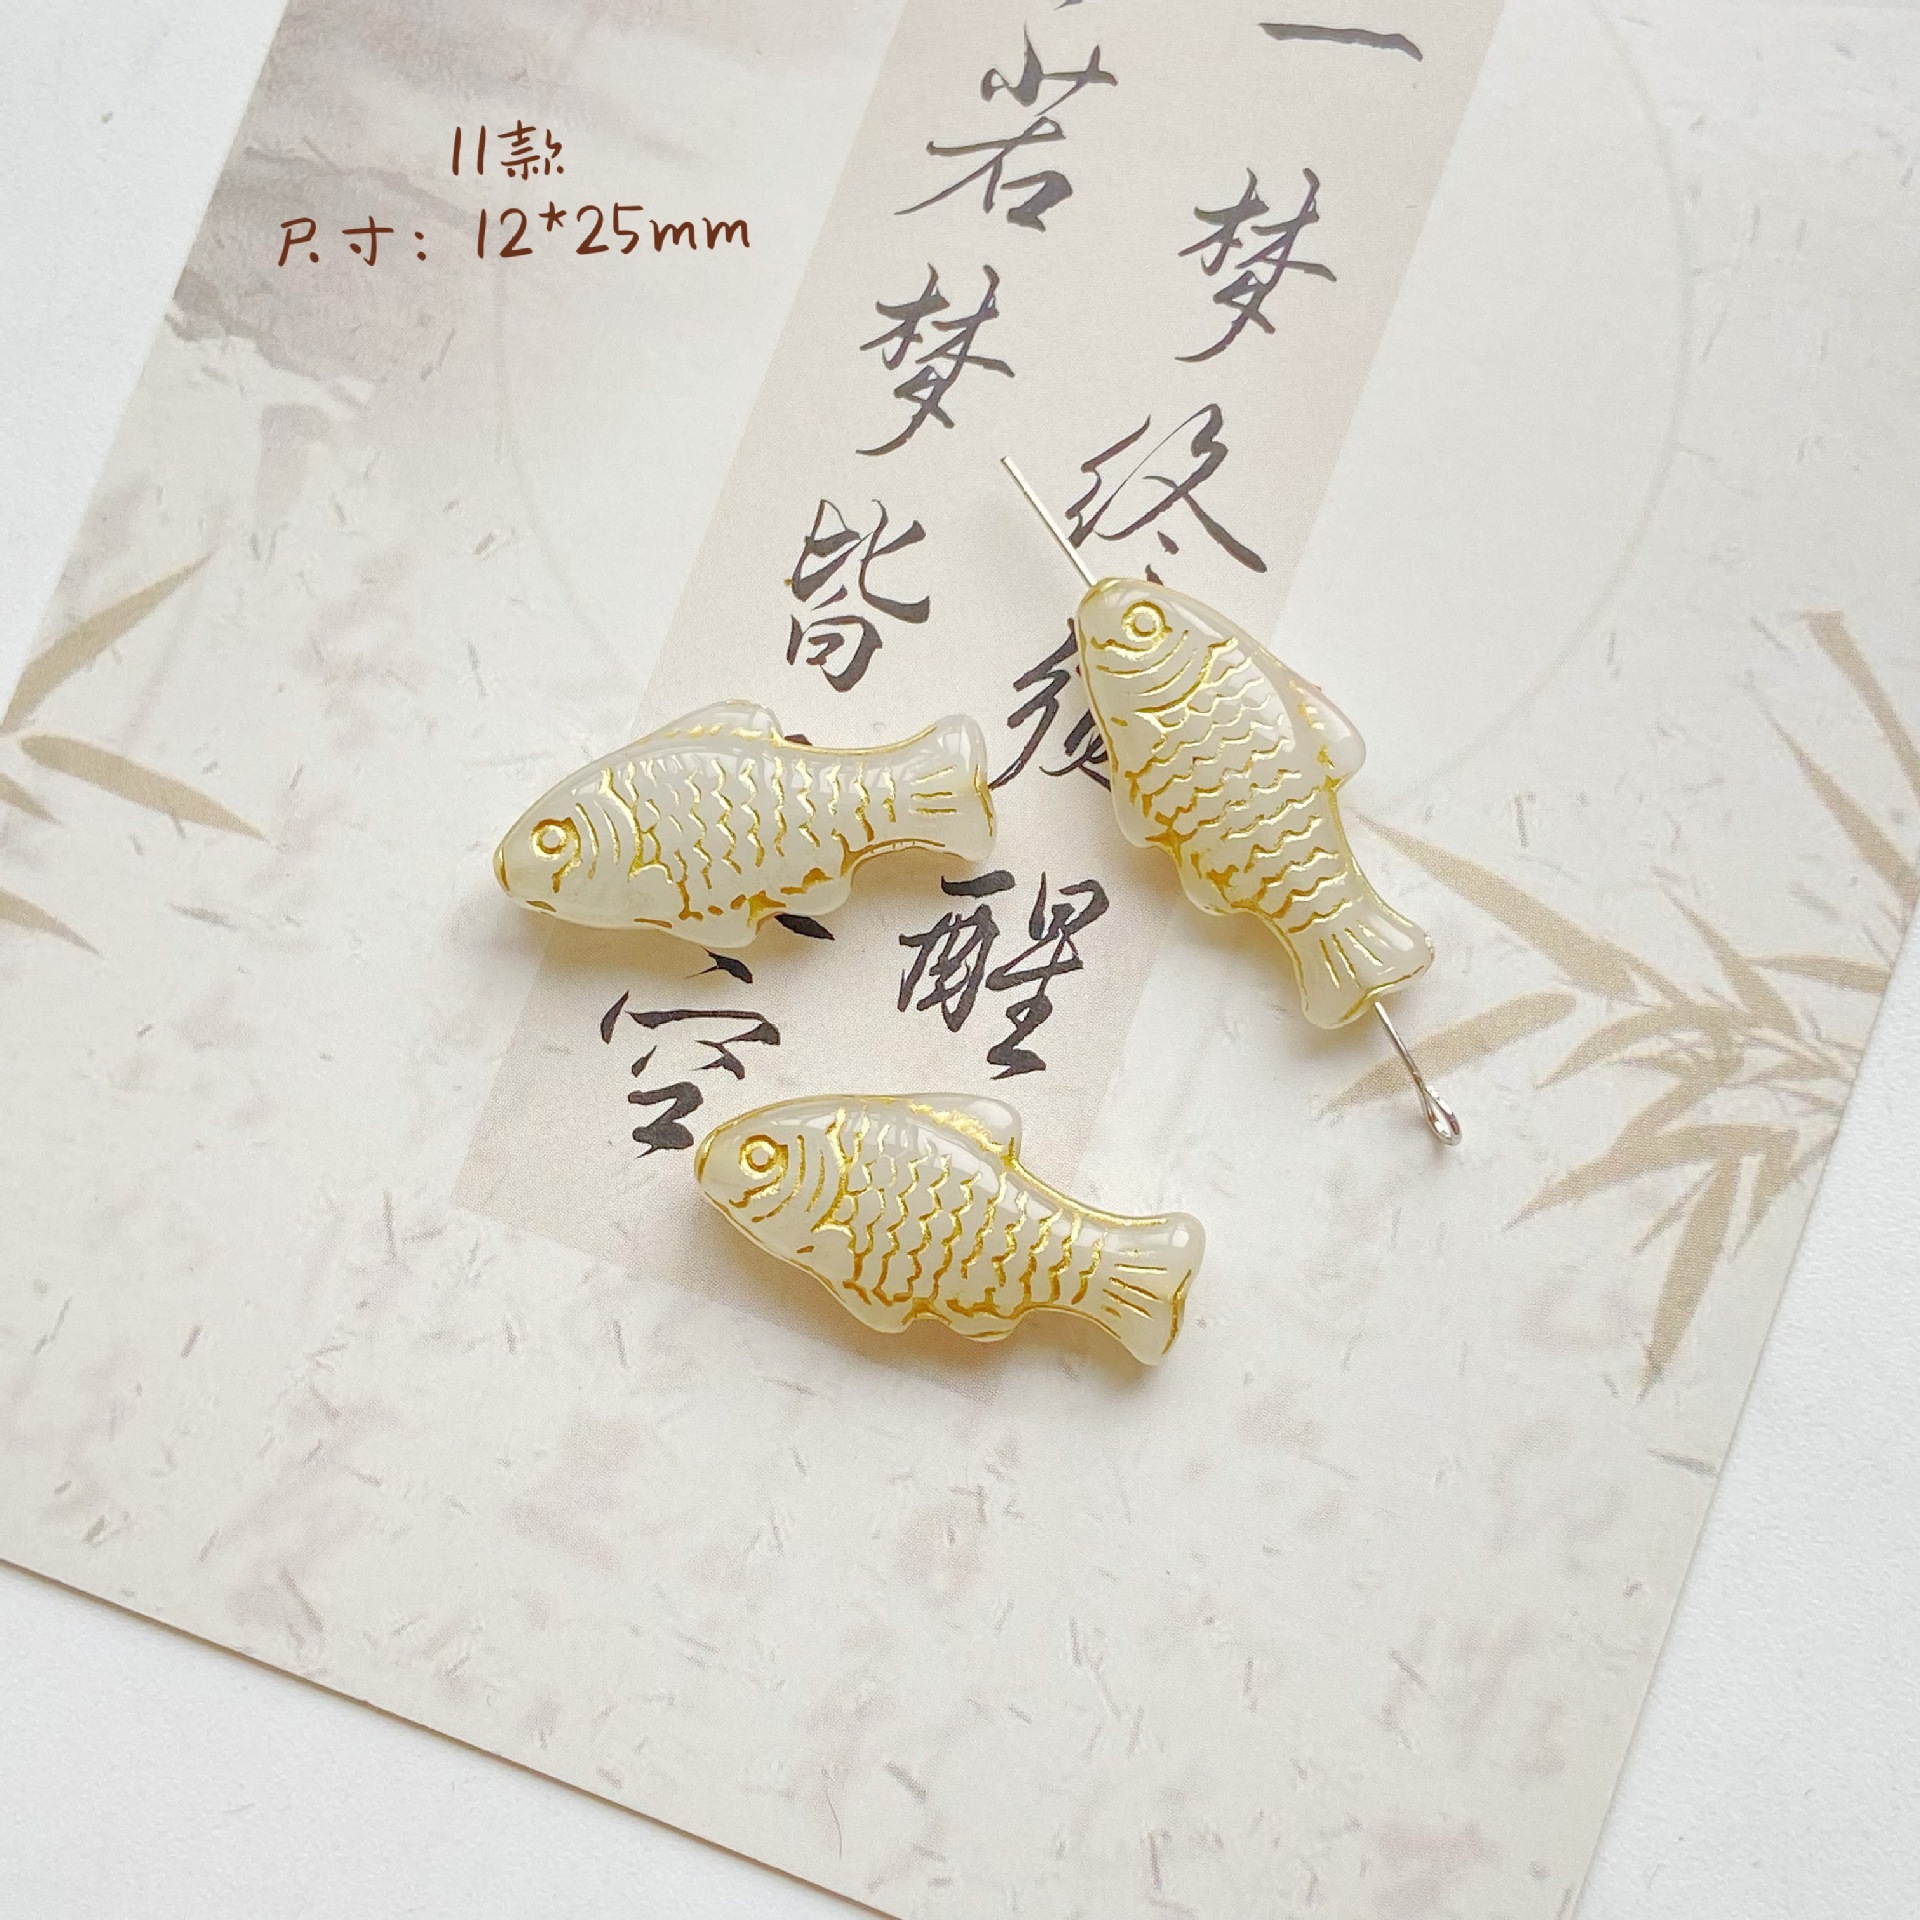 11款
尺寸：12*25mm
一梦终须醒
若梦皆空